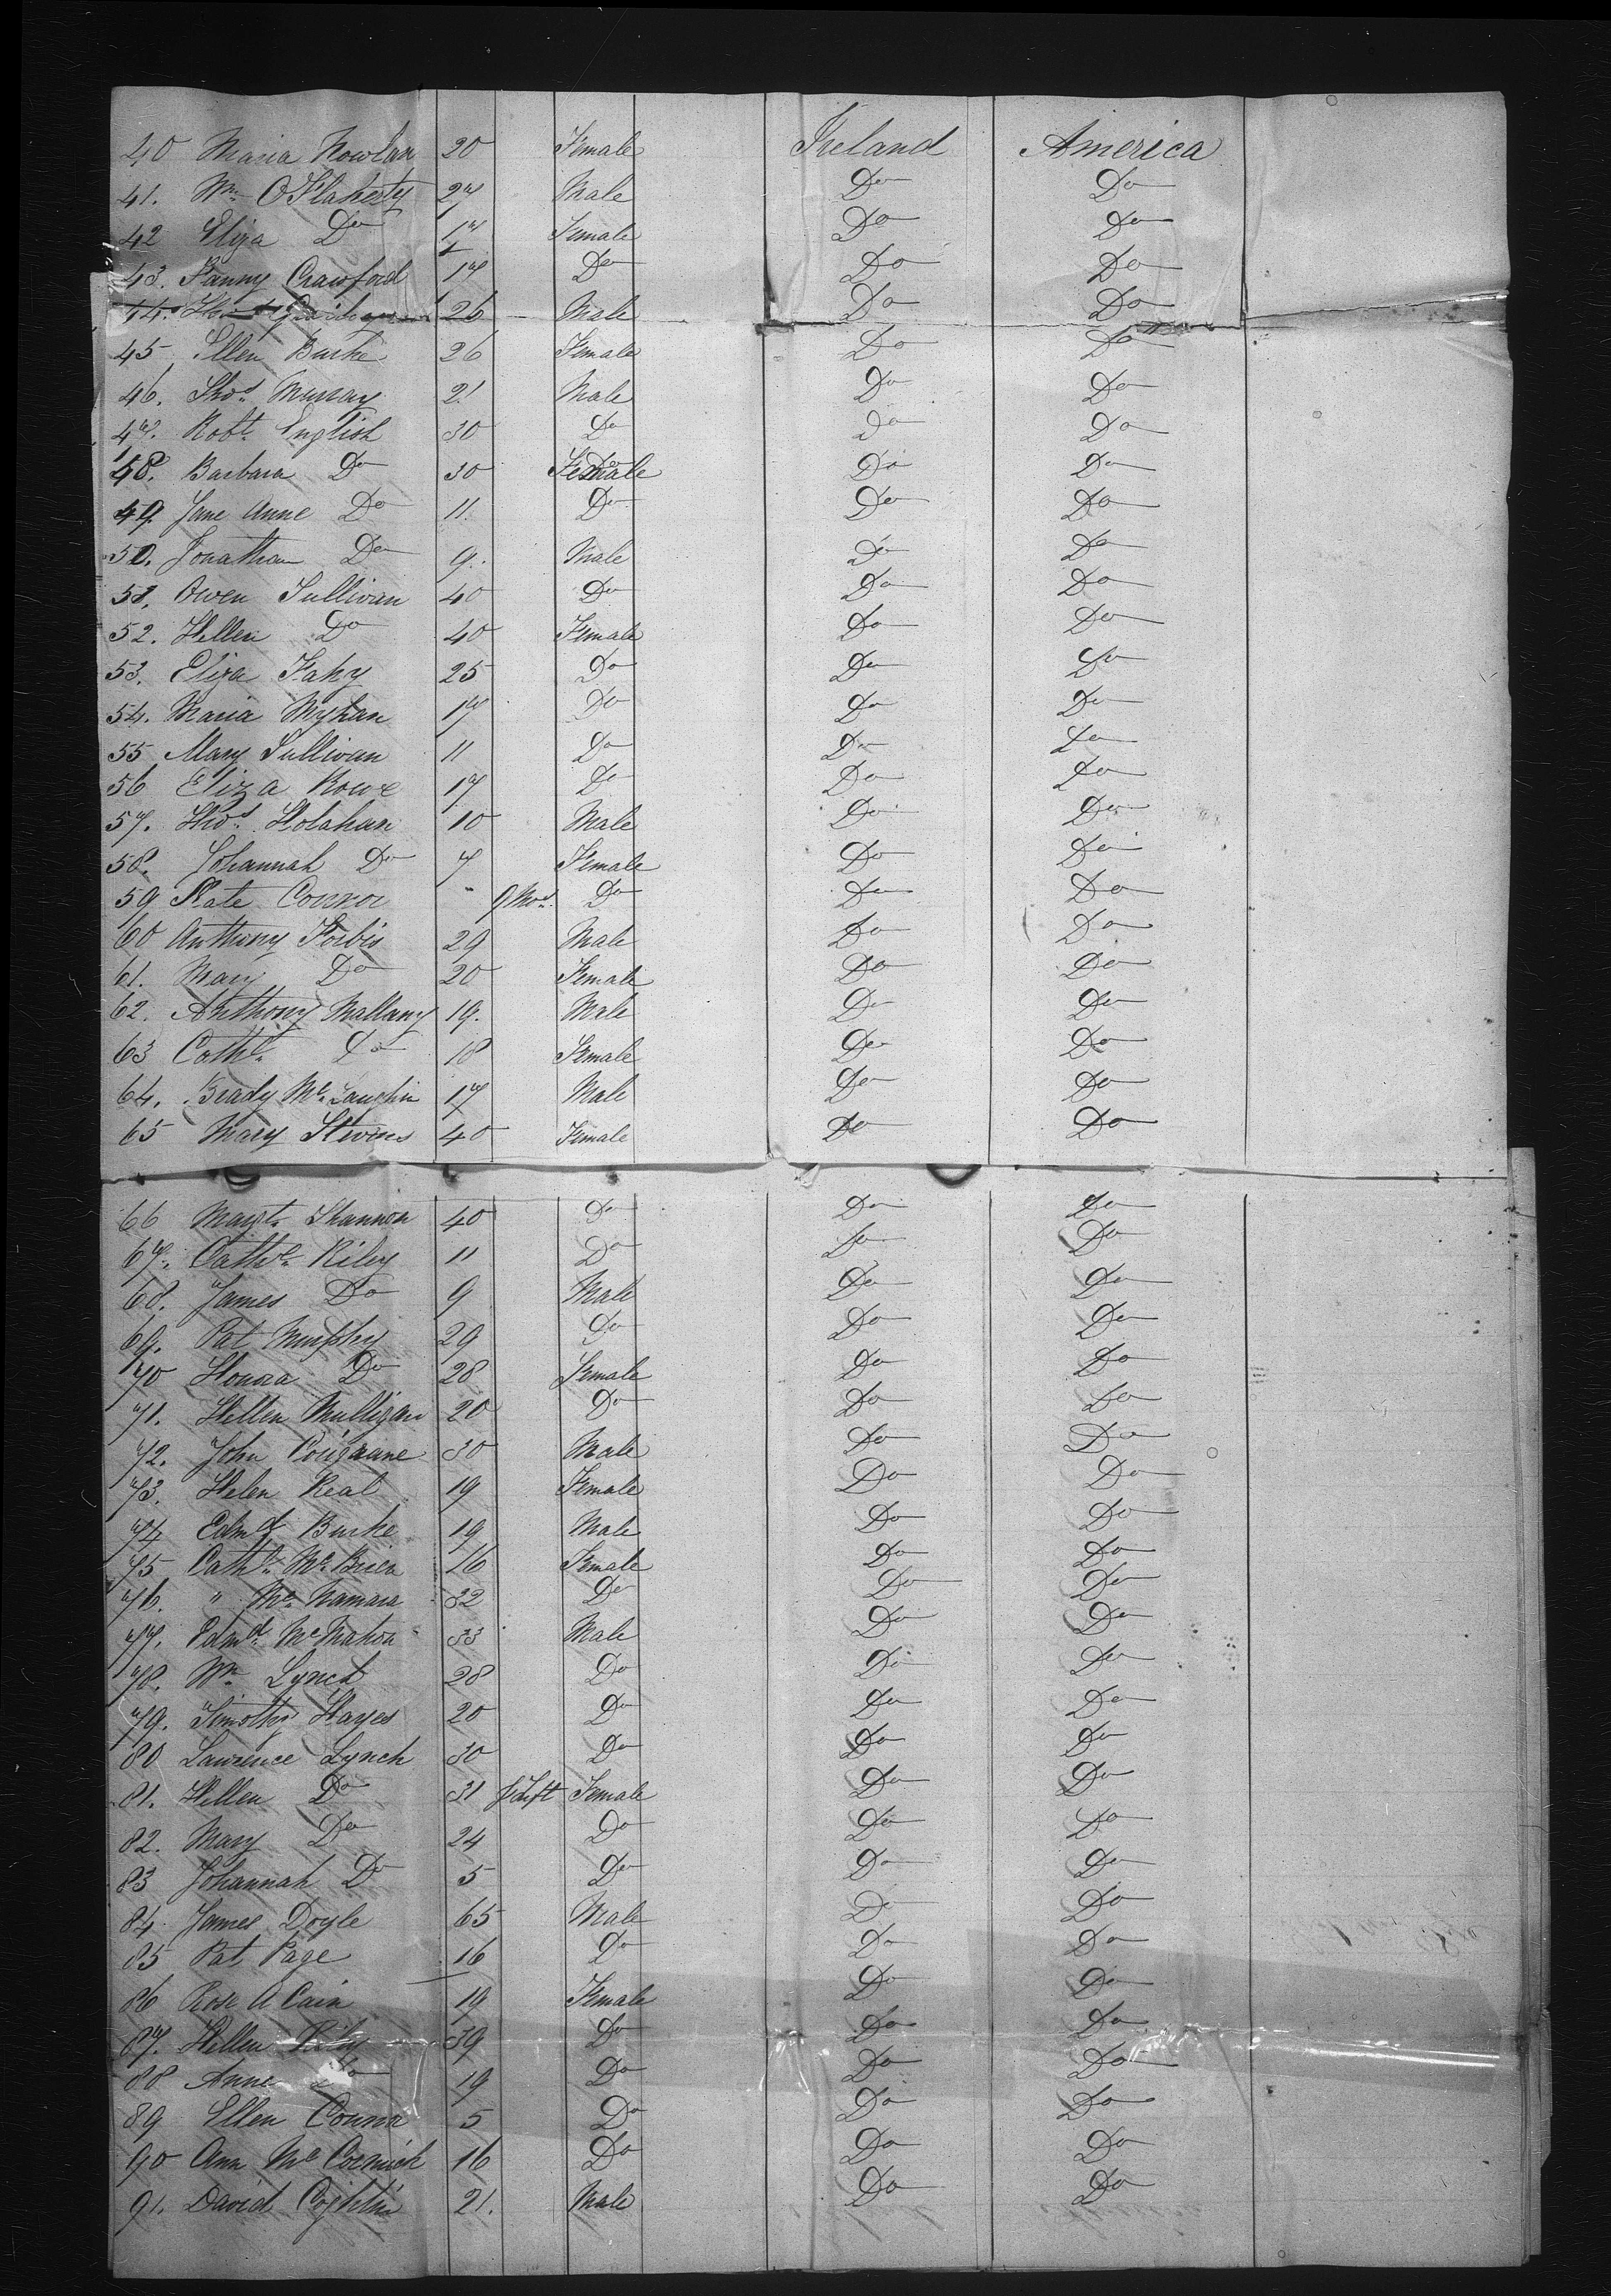 40 Maria Nowlan 20 Female Ireland America
41. Wm O'Flaherty 27 Male Do Do
42 Eliza Do 17 Female Do Do
43. Fanny Crawford 17 Do Do Do
44. 26 Male Do Do
45 Ellen Burke 26 Female Do Do
46. Thos Murray 21 Male Do Do
47. Robt English 30 Do Do Do
48. Barbara Do 30 Female Do Do
49 Jane Anne Do 11. Do Do Do
50. Jonathan Do 9. Male Do Do
51. Owen Sullivan 40 Do Do Do
52. Hellen Do 40 Female Do Do
53. Eliza Fahy 25 Do Do Do
54. Maria Myhan 17 Do Do Do
55 Mary Sullivan 11 Do Do Do
56 Eliza Rowe 17 Do Do Do
57. Thos Holahan 10 Male Do Do
58. Johannah Do 7 Female Do Do
59 Kate Connor " 9 Mos. Do Do Do
60 Anthony Forbis 29 Male Do Do
61. Mary Do 20 Female Do Do
62. Anthony Mallany 19. Male Do Do
63 Cathe Do 18 Female Do Do
64. Brady Mc Laughin 17 Male Do Do
65 Mary Stevens 40 Female Do Do
66 Margt Shannon 40 Do Do Do
67. Cathe Riley 11 Do Do Do
68. James Do 9 Male Do Do
69. Pat Murphy 29 Do Do Do
70 Honora Do 28 Female Do Do
71. Hellen Mulligan 20 Do Do Do
72. John 30 Male Do Do
73. Helen Real 19 Female Do Do
74 Edmd Burke 19 Male Do Do
75 Cathe Mc Brien 16 Female Do Do
76. " Mc Namara 32 Do Do Do
77. Edmd Mc Mahon 33 Male Do Do
78. Wm Lynch 28 Do Do Do
79. Timothy Hayes 20 Do Do Do
80 Lawrence Lynch 30 Do Do Do
81. Hellen Do 31 Female Do Do
82. Mary Do 24 Do Do Do
83 Johannah Do 5 Do Do Do
84. James Doyle 65 Male Do Do
85 Pat Page 16 Do Do Do
86 Rose A Cain 19 Female Do Do
87. Hellen Riley 39 Do Do Do
88 Anne Do 19 Do Do Do
89 Ellen Connor 5 Do Do Do
90 Ann Mc Cormick 16 Do Do Do
91. David Coghlin 21. Male Do Do